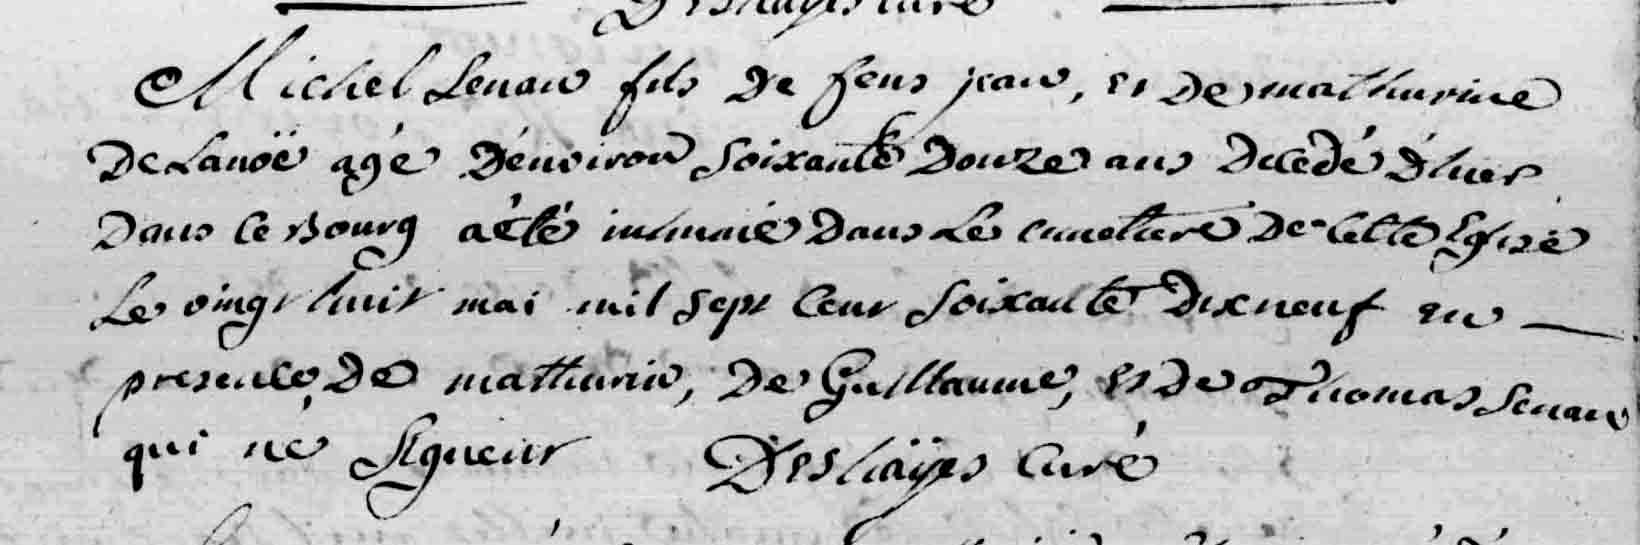 Deshayes curé
Michel Lenan fils de feus jean, et de mathurine
De Lanöe agé D'environ soixante Douze ans Decedé D'hier
Dans ce Bourg a été inhumé Dans Le cimetiere De cette Eglise
Le vingt huit mai mil sept cent soixante Dixneuf en
presence, De mathurin, De Guillaume, et De Thomas Senan
qui ne signent Deshaÿes Curé